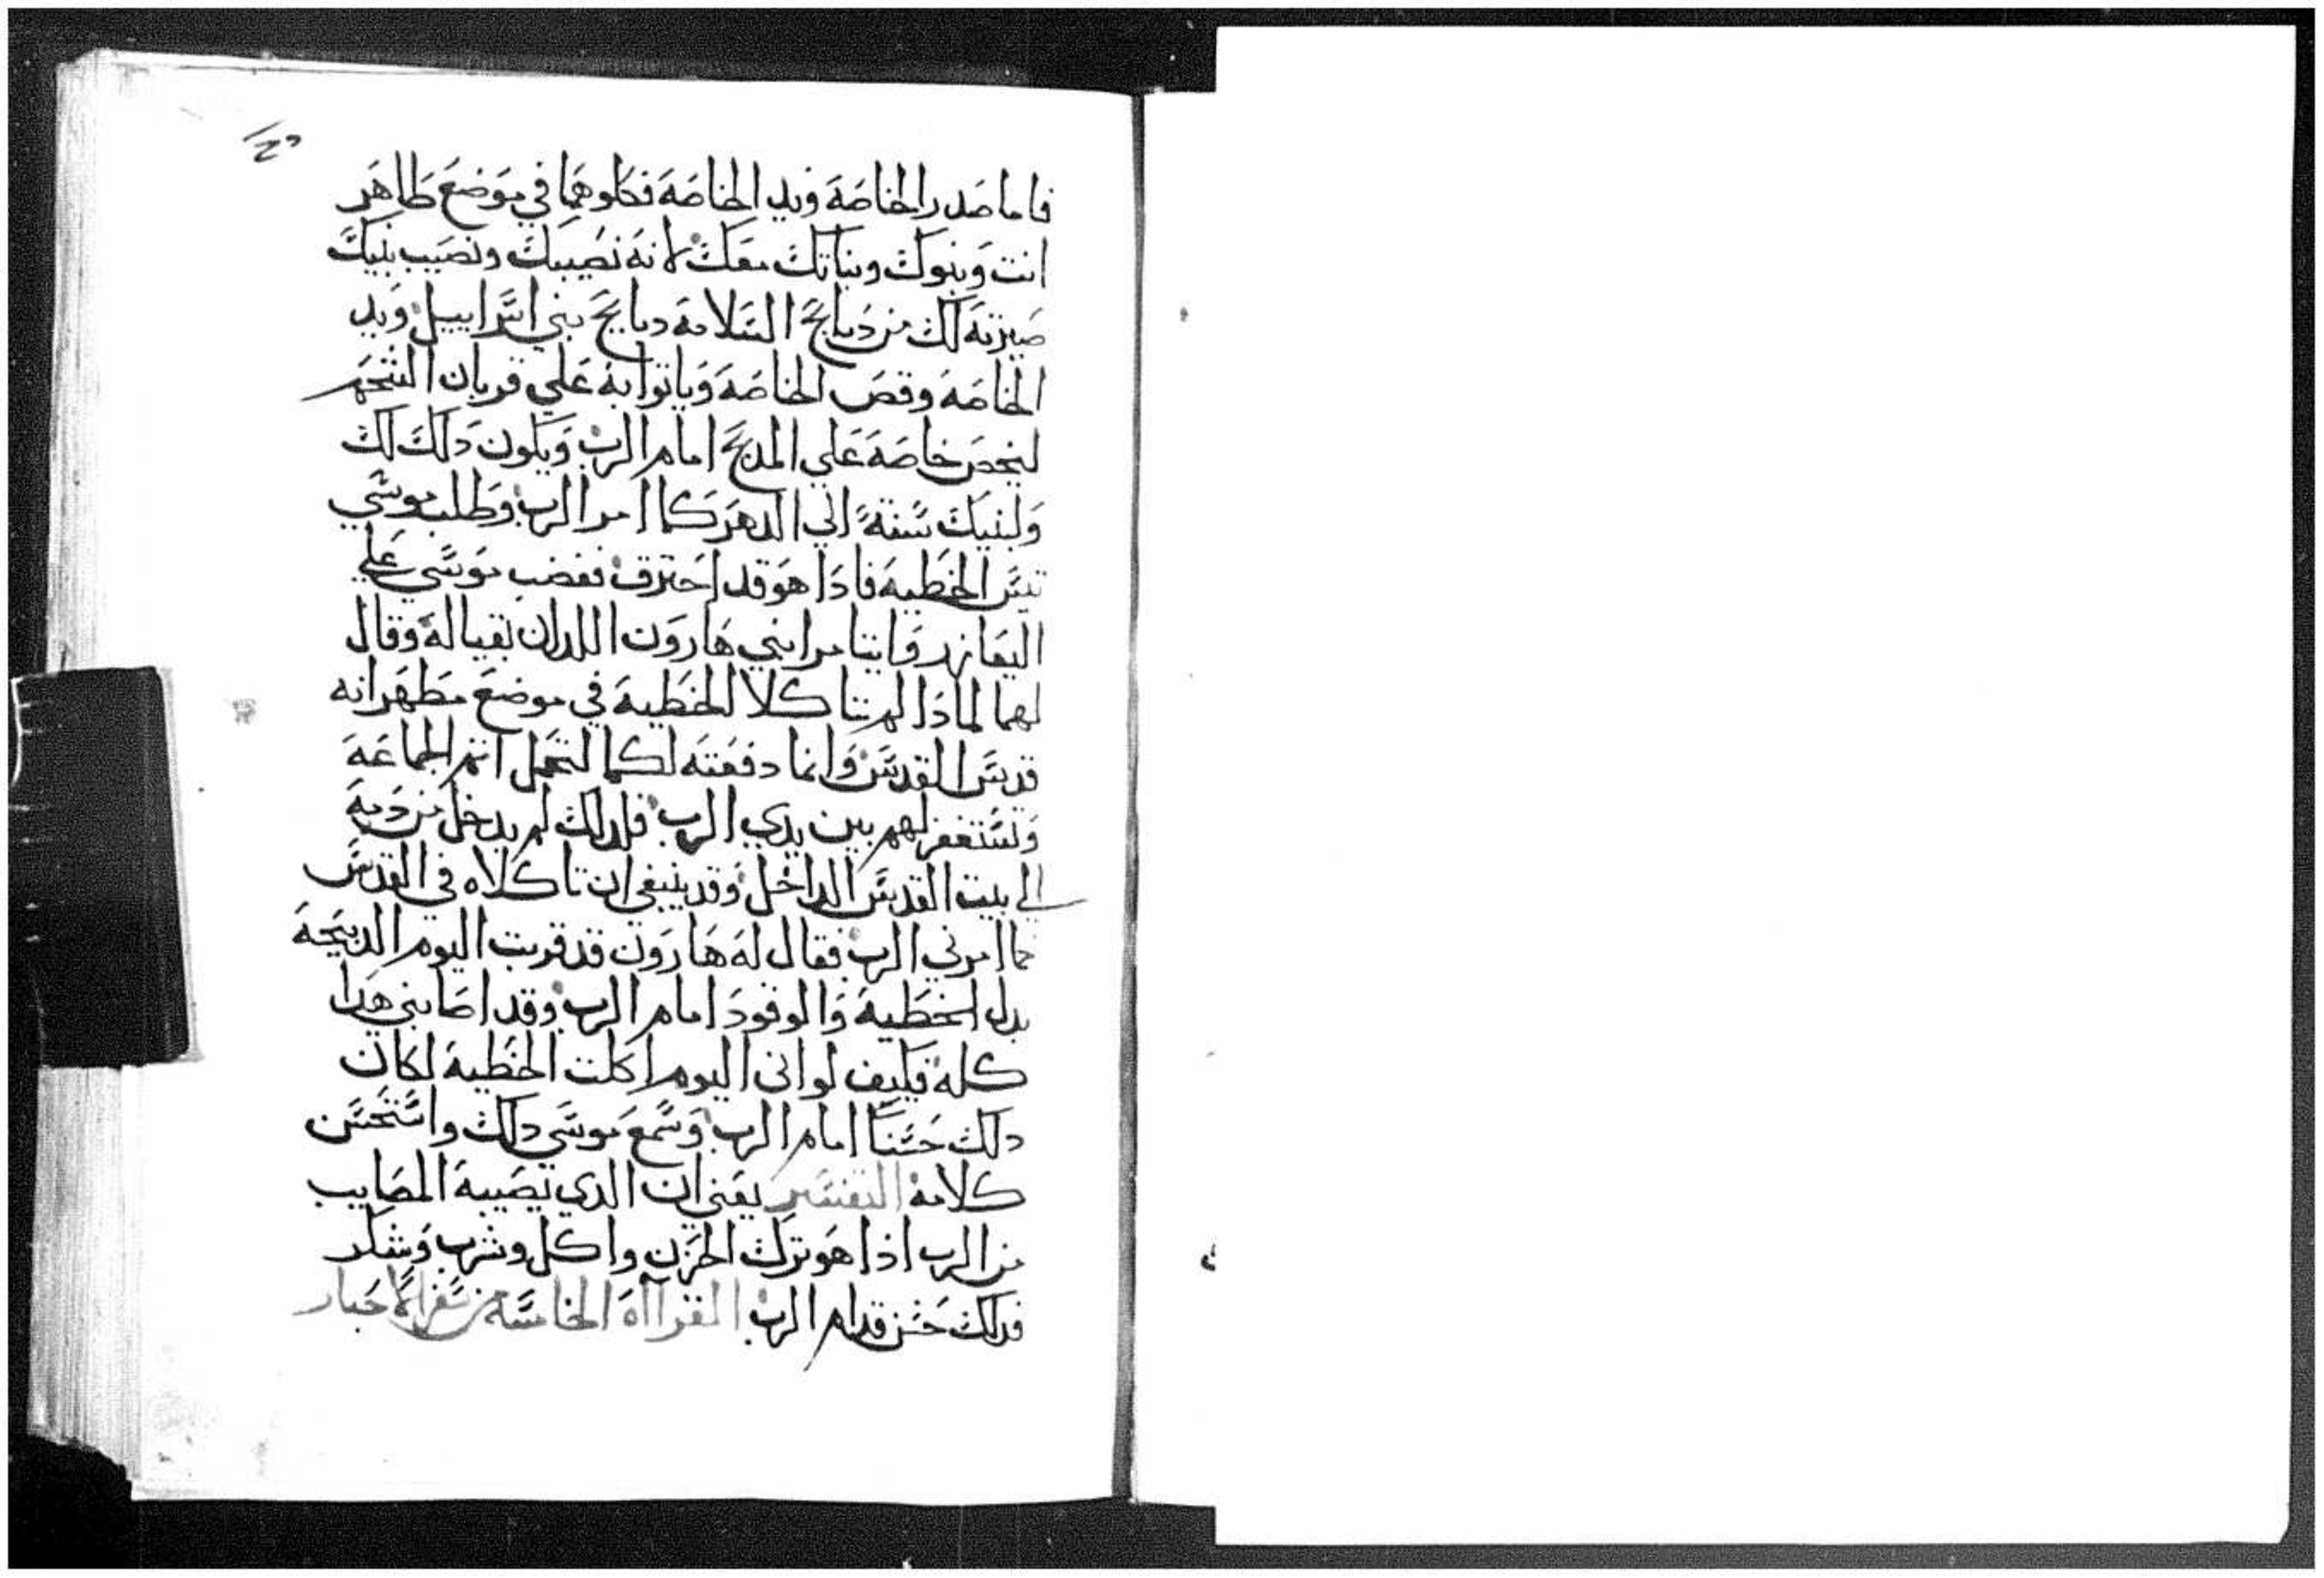 فاما صدر الخاصة ويد الخاصة فكلوهما في موضع طاهر
انت وبنوك وبناتك معك لانه نصيبك ونصيب بنيك
صيرته لك من دبايح السلامة دبايح بني اسراييل ويد
الخاصة وقص الخاصة وياتوا به علي قربان الشحم
ليخص خاصة علي المدبح امام الرب ويكون دلك لك
ولبنيك سنة الي الدهر كما امر الرب وطلب موسي
تيس الخطية فادا هو قد احترق فغضب موسي علي
اليعازر وايتامر ابني هارون اللدان بقيا له وقال
لهما لمادا لم تاكلا الخطية في موضع مطهر انه
قدس القدس وانما دفعته لكما لتحمل اتم الجماعة
وتستغفر لهم بين يدي الرب فلدلك لم يدخل من دمه
الي بيت القدس الداخل وقد ينبغي ان تاكلاه في القدس
كما امرني الرب فقال له هارون قد قربت اليوم الدبيحة
بدل الخطية والوقود امام الرب وقد اصابني هدا
كله فكيف لو اني اليوم اكلت الخطية لكان
دلك حسنا امام الرب وسمع موسي دلك واستحسن
كلامه التفسير يعني ان الدي تصيبه المصايب
من الرب اذا هو ترك الحزن واكل وشرب وشكر
فدلك حسن قدام الرب القرآاه الخامسة من سفر الاحبار